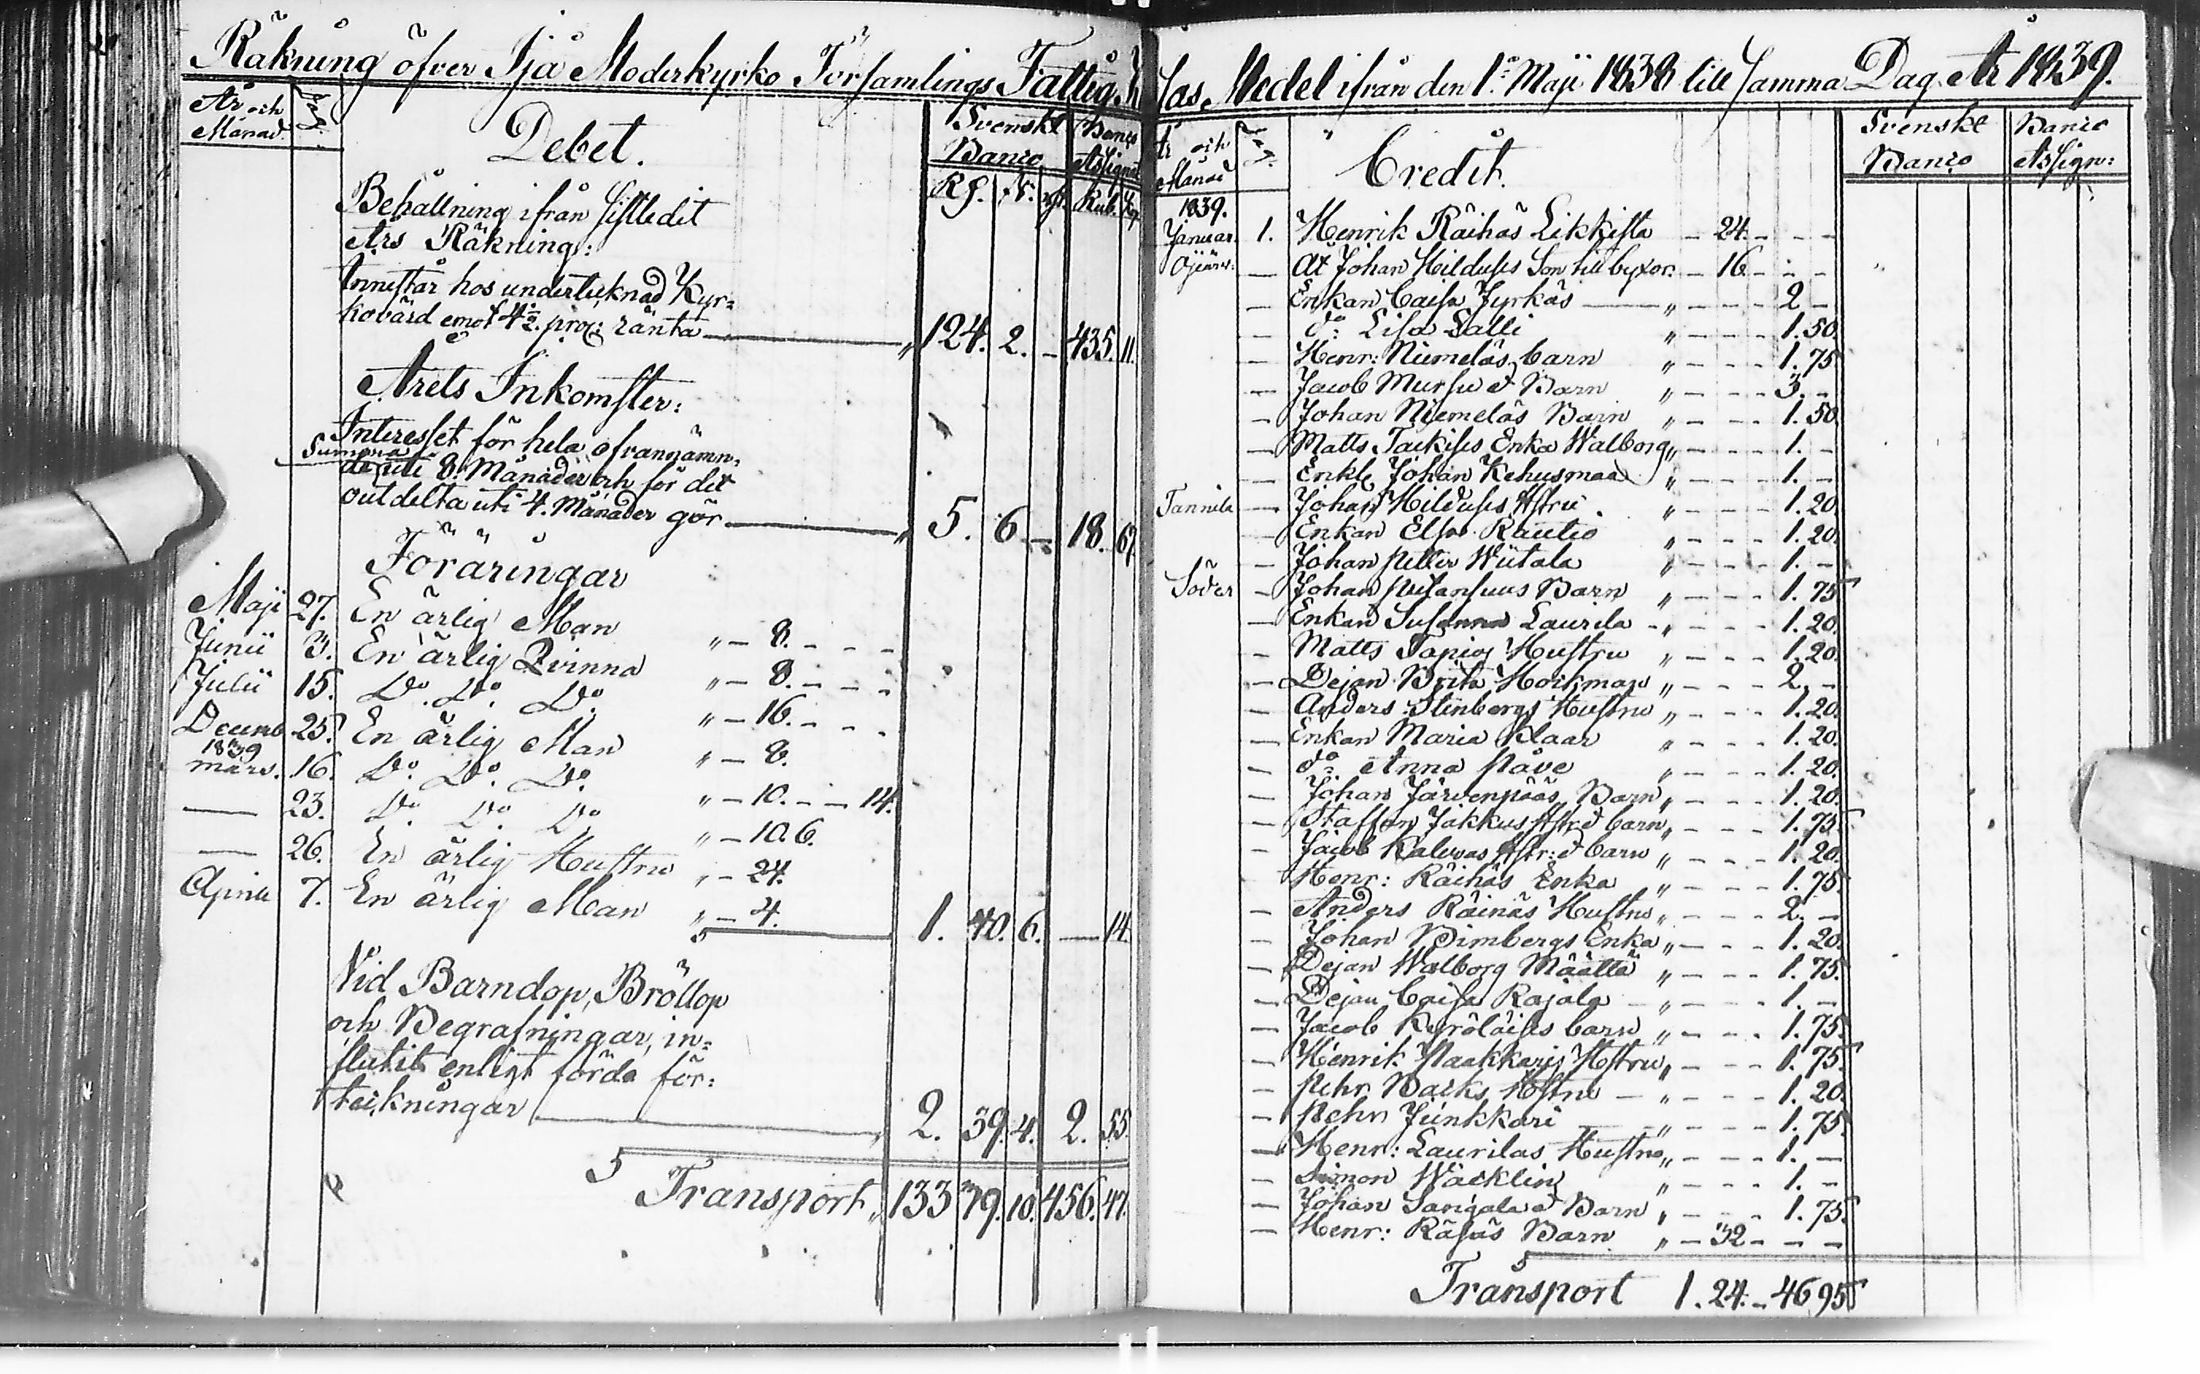 Räkning öfver Ijå Moderkyrko Församlings Fattig K
År och Månad. Dag.
Debet.
Svenskt Banco Banco Assignat
Rd. s. rst. Rub. Kop.
Behållning ifrån sistledit
Års Räkning:
Innestår hos undertecknad Kyr=
kovärd emot 4½ proc: ränta „ 124. 2. — 435. 11.
Årets Inkomster:
Interesset för hela ofvannämn=
Summa
da uti 8. Månader och för det
outdelta uti 4. Månader gör „ 5. 6. — 18. 67.
Föräringar
Maji 27. En ärlig Man „ — 8. — — —
Junii 3. En ärlig Qvinna „ — 8. — — —
Julii 15. Do. Do. Do. „ — 16. — — —
Decemb 25. En ärlig Man „ — 8.
1839
Mars. 16. Do. Do. Do. „ — 10. — — 14.
— 23. Do. Do. Do „ — 10. 6.
— 26. En ärlig Hustru „ — 24.
Aprill 7. En ärlig Man „ — 4. 1. 40. 6. — 14.
Vid Barndop, Bröllop
och Begrafningar, in=
flutit enligt förda för=
teckningar 2. 39. 4. 2. 55.
Transport „ 133 39. 10. 456. 47.
sas Medel ifrån den 1o Maji 1838 till samma Dag År 1839.
År och Månad Dag.
Credit.
Svenskt Banco Banco Assign:
1839.
Januar. 1. Henrik Räihäs Likkista — 24. — — —
Ojärv: — At Johan Hilduses Son till byxor. — 16 — — —
— Enkan Caisa Jyrkäs „ — — — 2 —
— do: Lisa Lalli „ — — — 1. 50.
— Henr: Niemeläs barn „ — — — 1. 75
— Jacob Mursu et Barn „ — — — 3. —
— Johan Niemeläs Barn „ — — — 1. 50
— Matts Taikises Enka Walborg „ — — — 1. —
— Enkl. Johan Kehusmaa „ — — — 1. —
Tannila — Johan Hilduses Hstru „ — — — 1. 20
— Enkan Elsa Rautio „ — — — 1. 20
— Johan Petter Wiitala „ — — — 1. —
Söder — Johan Barn „ — — — 1. 75
— Enkan Susanna Laurila „ — — — 1. 20.
— Matts Tapios Hustru „ — — — 1. 20.
— Dejan Brita Hoikman „ — — — 2. —
— Anders Stenbergs Hustru „ — — — 1. 20.
— Enkan Maria Klaar „ — — — 1. 20.
— do Anna Påve „ — — — 1. 20.
— Johan Järvenpääs Barn „ — — — 1. 20.
— Staffan Jakkus Hstr et barn „ — — — 1. 75
— Jacob Kalevas Hstr: et barn „ — — — 1. 20.
— Henr: Räihäs Enka „ — — — 1. 75.
— Anders Räinäs Hustru „ — — — 2. —
— Johan Bimbergs Enka „ — — — 1. 20.
— Dejan Walborg Määttä „ — — — 1. 75.
— Dejan Caisa Rajala — „ — — — 1. —
— Jacob Kyröläises barn „ — — — 1. 75.
— Henrik Paakkaris Hstru „ — — — 1. 75
— Pehr Backs Hstru — „ — — — 1. 20.
— Pehr Junkkari „ — — — 1. 75.
— Henr: Laurilas Hustru „ — — — 1. —
— Simon Wäcklin „ — — — 1. —
— Johan Sarigala et Barn „ — — — 1. 75.
— Henr: Räsäs Barn „ — 32 — — —
Transport 1. 24. — 46 95